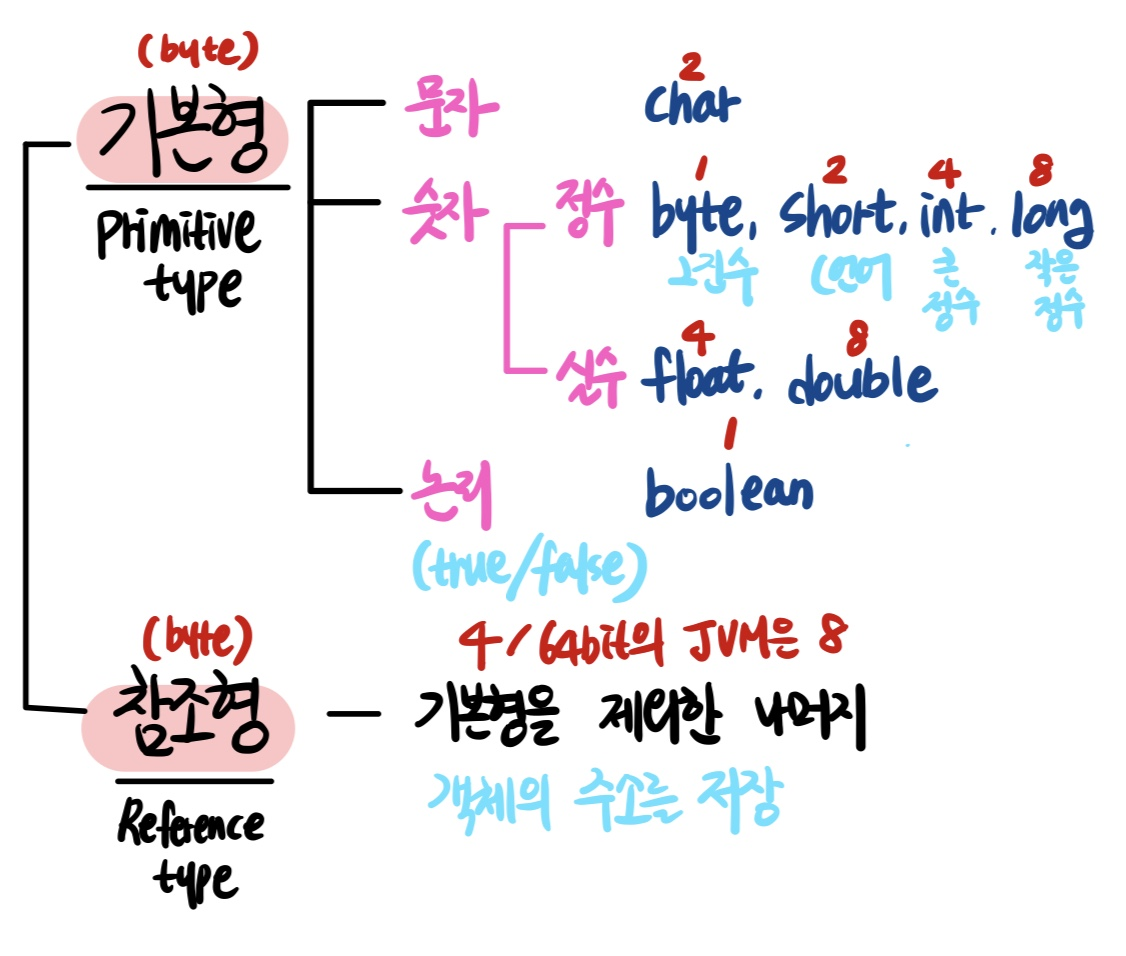 (byte)
기본형
Primitive
type
문자
2
char
숫자
정수
1 2 4 8
byte, short, int, long
2진수 C언어 큰 작은
정수 정수
실수
4 8
float, double
1
논리
boolean
(true/false)
(byte)
참조형
Reference
type
4/64bit의 JVM은 8
기본형을 제외한 나머지
객체의 주소를 저장